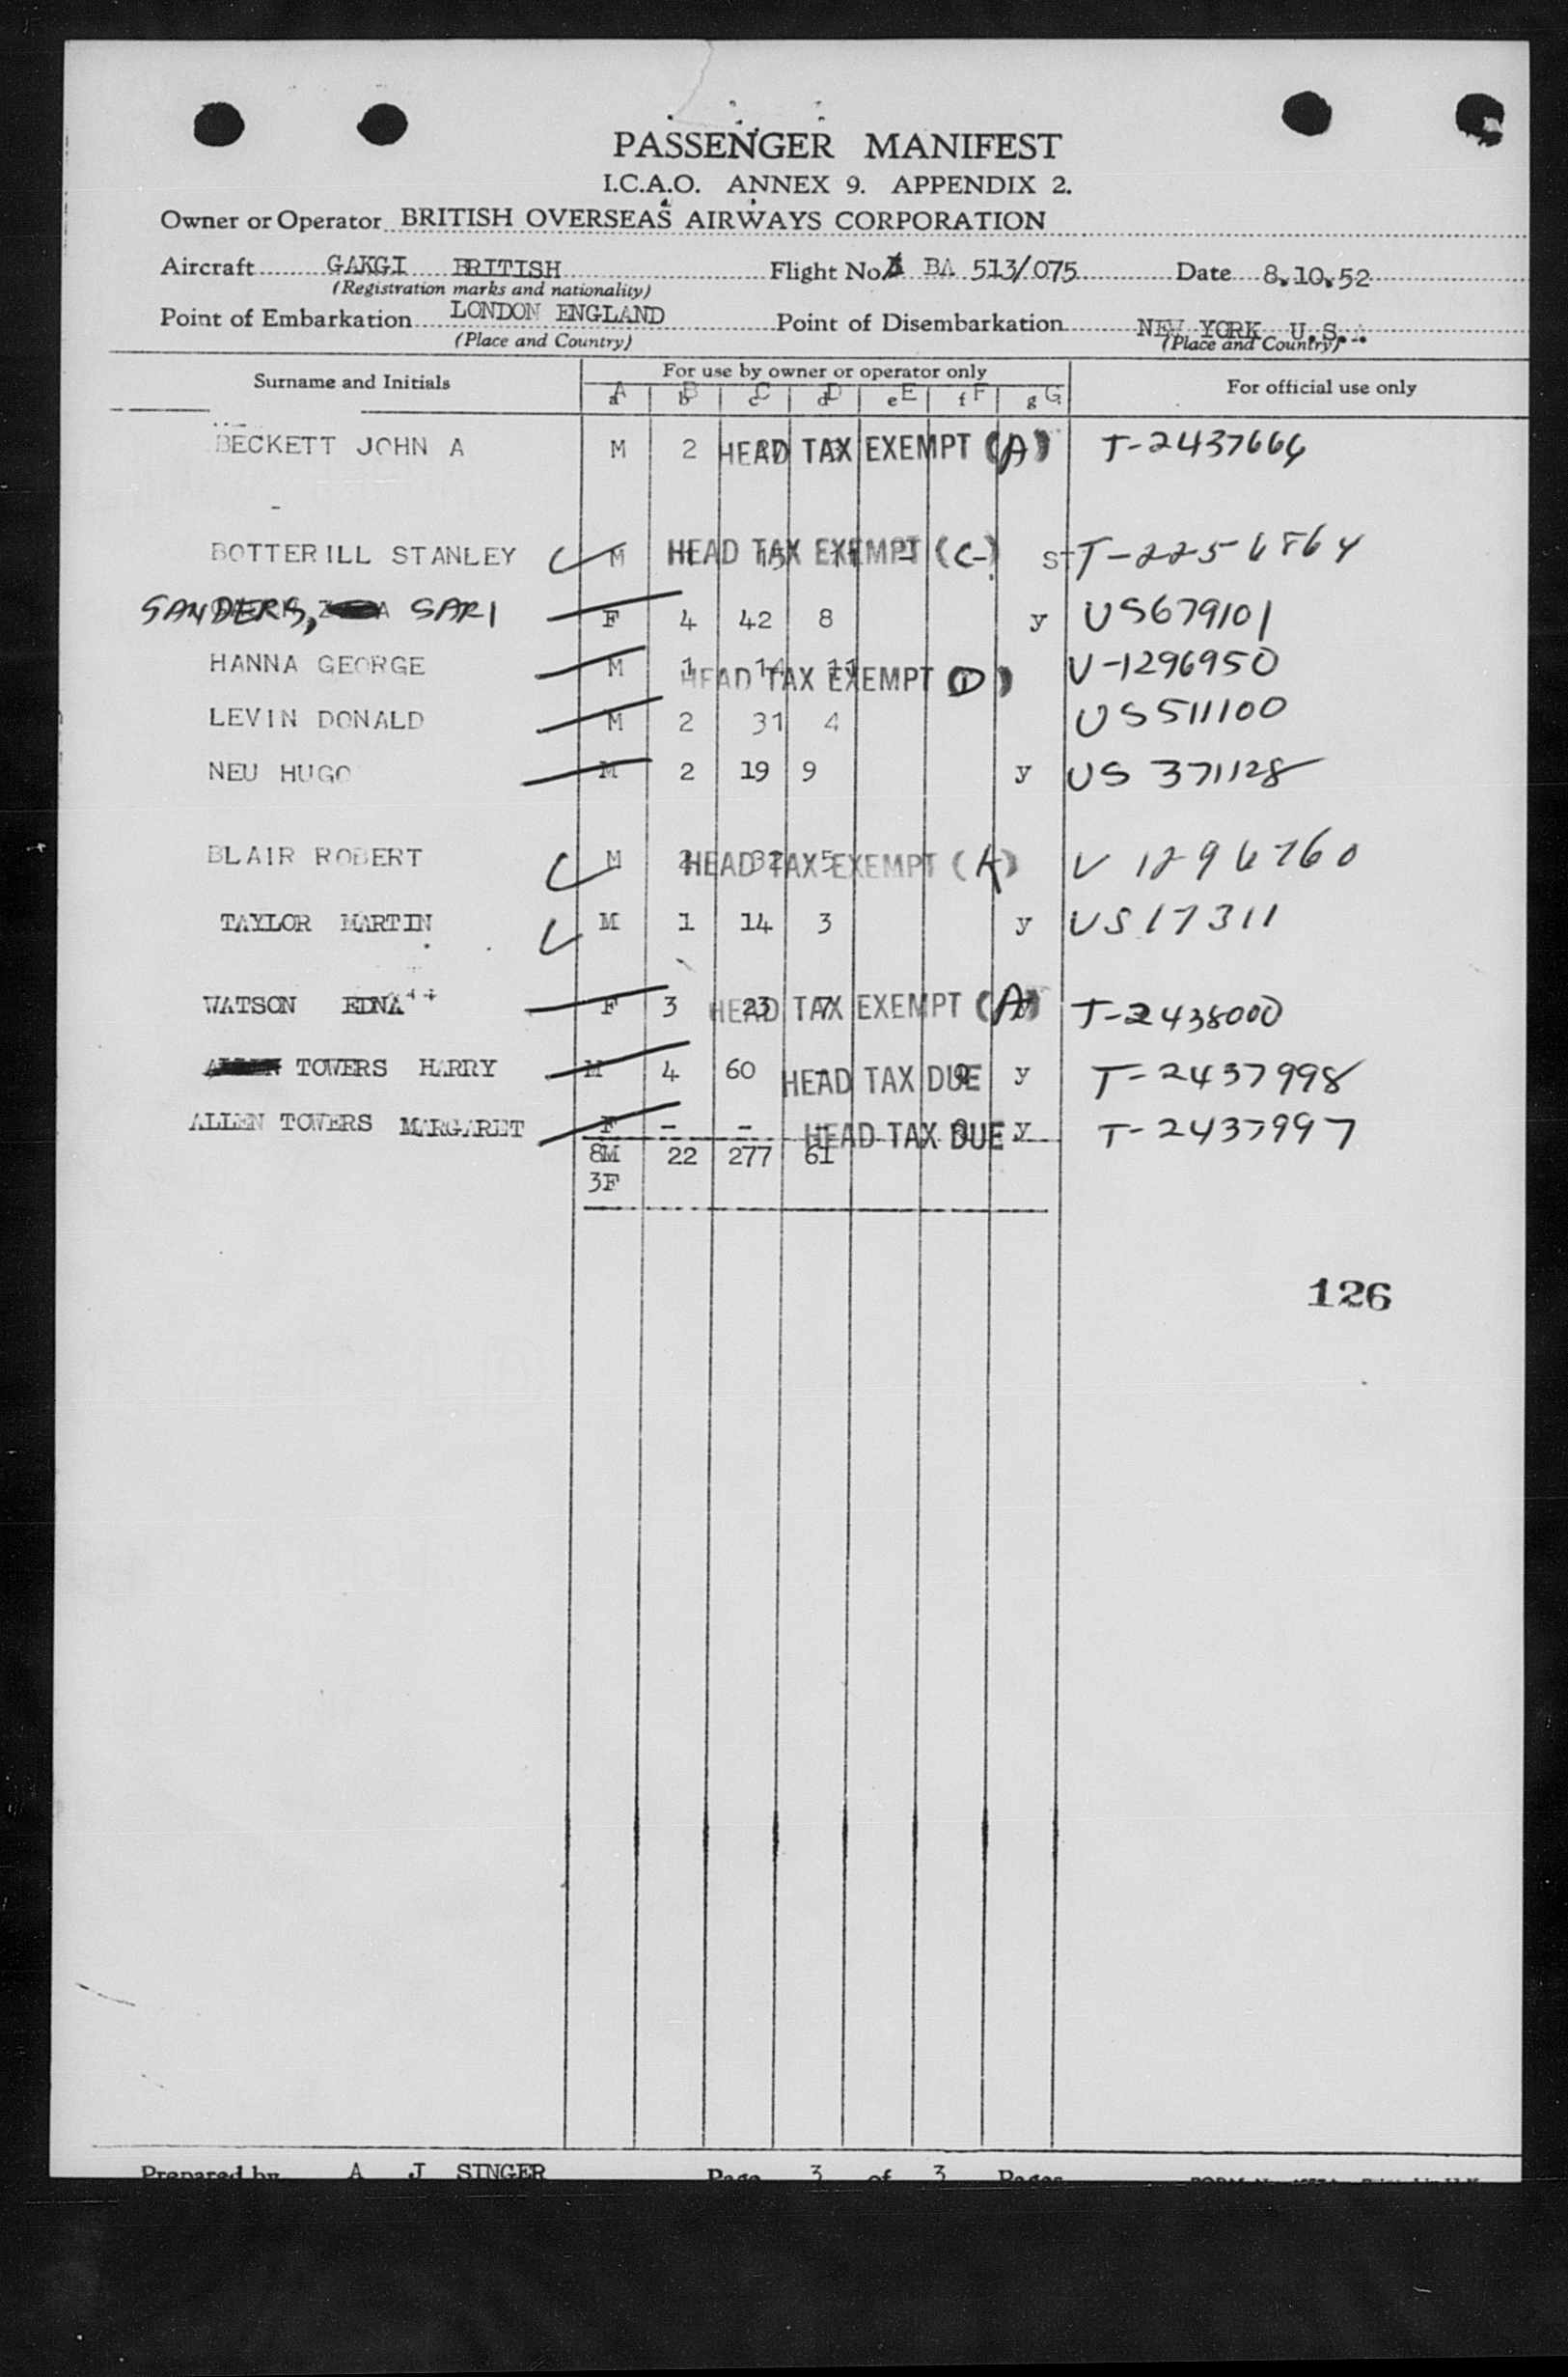 PASSENGER MANIFEST
I.C.A.O. ANNEX 9. APPENDIX 2.
Owner or Operator BRITISH OVERSEAS AIRWAYS CORPORATION
Aircraft GAKGI BRITISH Flight No. BA 513/075 Date 8.10.52
(Registration marks and nationality)
Point of Embarkation LONDON ENGLAND Point of Disembarkation NEW YORK U.S.A
(Place and Country) (Place and Country)
Surname and Initials For use by owner or operator only For official use only
a A b B c C d D e E f F g G
BECKETT JOHN A M 2 HEAD TAX EXEMPT (A) T-2437664
BOTTERILL STANLEY M HEAD TAX EXEMPT (C-) S T-2256864
SANDERS, SARI F 4 42 8 y US679101
HANNA GEORGE M 1 14 11 HEAD TAX EXEMPT (D) V-1296950
LEVIN DONALD M 2 31 4 US511100
NEU HUGO M 2 19 9 y US 371128
BLAIR ROBERT M 2 32 5 HEAD TAX EXEMPT (A) V 1296760
TAYLOR MARTIN M 1 14 3 y US17311
WATSON EDNA F 3 23 7 HEAD TAX EXEMPT (A) T-2438000
TOWERS HARRY M 4 60 HEAD TAX DUE y T-2437998
ALLEN TOWERS MARGARET F - - HEAD TAX DUE y T-2437997
8M 22 277 61
3F
126
Prepared by A J SINGER Page 3 of 3 Pages